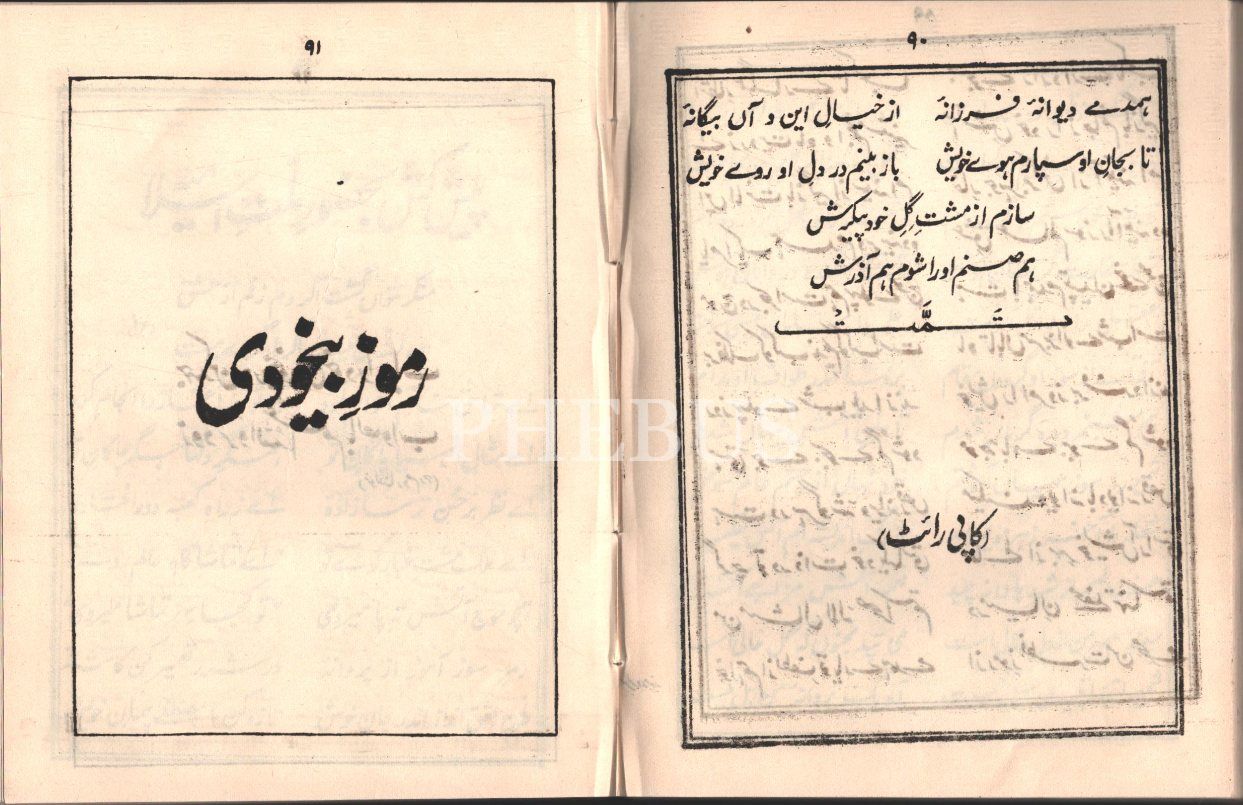 ۹۰
ہمدمے دیوانۂ فرزانۂ از خیالِ این و آں بیگانۂ
تا بجانِ او سپارم ہوے خویش باز بینم در دلِ او روے خویش
سازم از مشتِ گِلِ خود پیکرش
ہم صنم او را شوم ہم آذرش
تَمَّتْ
(کاپی رائٹ)
۹۱
رموزِ بیخودی
PHEBUS